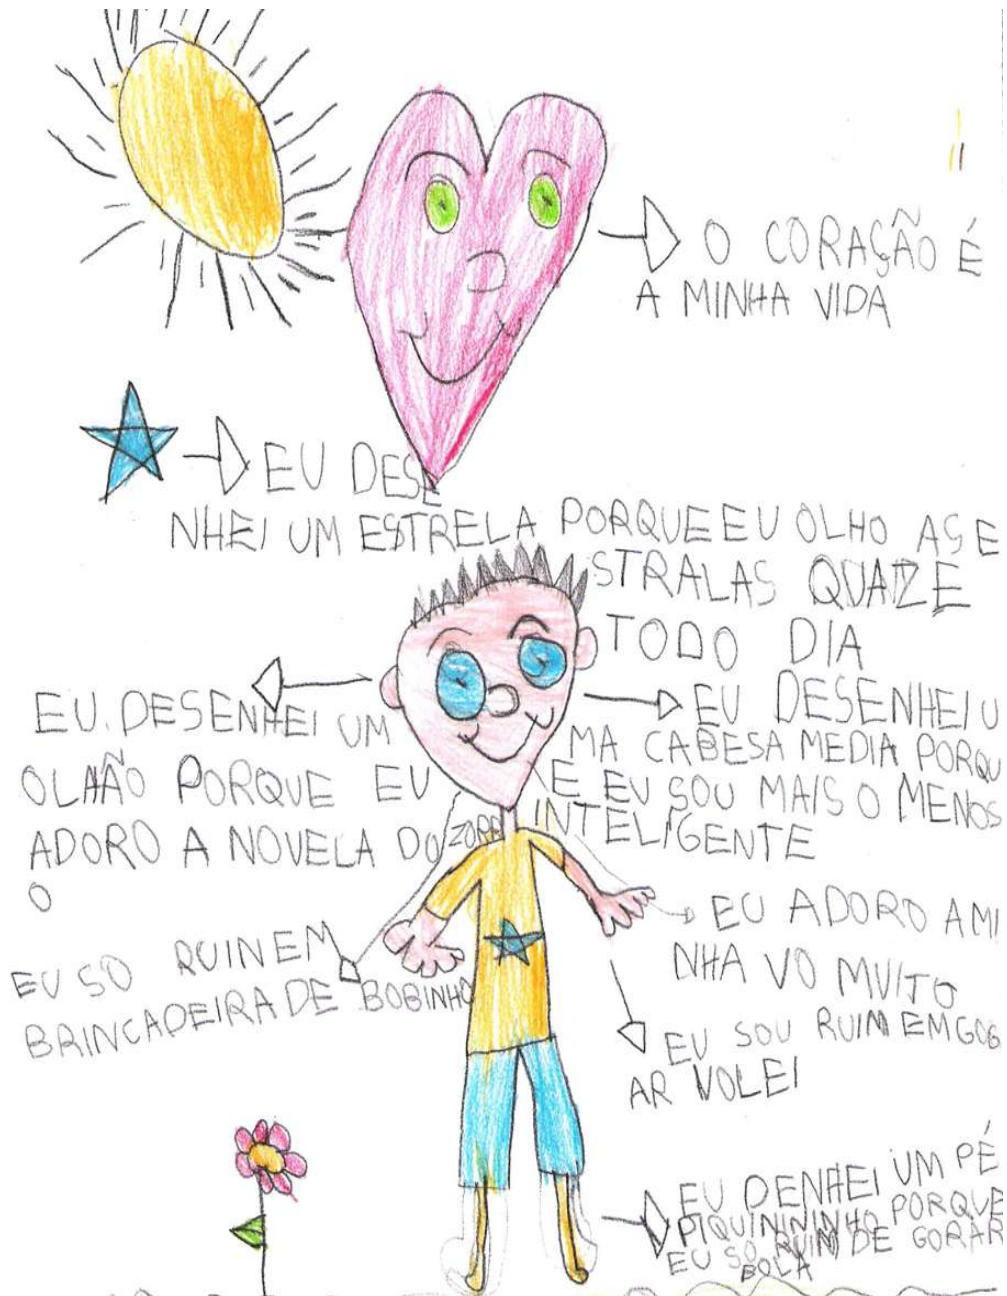 O CORAÇÃO É
A MINHA VIDA
EU DESE
NHEI UM ESTRELA PORQUE EU OLHO AS E
STRALAS QUAIZE
TODO DIA
EU DESENHEI UM
OLHÃO PORQUE EU
ADORO A NOVELA DO ZORR
O
EU DESENHEI U
MA CABESA MEDIA PORQU
E EU SOU MAIS O MENOS
INTELIGENTE
EU SO RUIN EM
BRINCADEIRA DE BOBINHO
EU ADORO A MI
NHA VO MUITO
EU SOU RUIM EM GOG
AR VOLEI
EU DENHEI UM PÉ
PIQUINININHO PORQUE
EU SO RUIM DE GORAR
BOLA